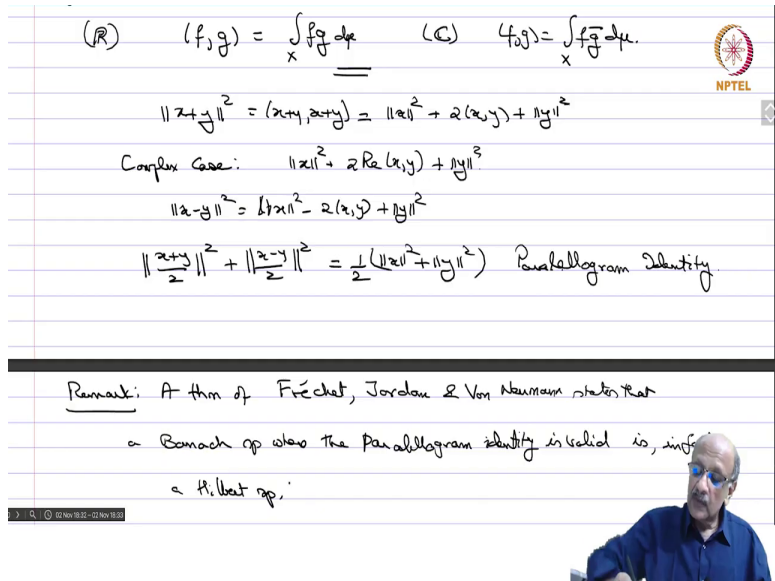 (ℝ) (f,g) = ∫_X fg dμ (ℂ) (f,g) = ∫_X fḡ dμ.
NPTEL
||x+y||² = (x+y, x+y) = ||x||² + 2(x,y) + ||y||²
Complex Case: ||x||² + 2Re(x,y) + ||y||²
||x-y||² = ||x||² - 2(x,y) + ||y||²
||x+y/2||² + ||x-y/2||² = 1/2 (||x||² + ||y||²) Parallelogram Identity.
Remark: A thm of Fréchet, Jordan & Von Neumann states that
a Banach sp where the Parallelogram identity is valid is, in
a Hilbert sp.
02 Nov 18:32 - 02 Nov 18:33